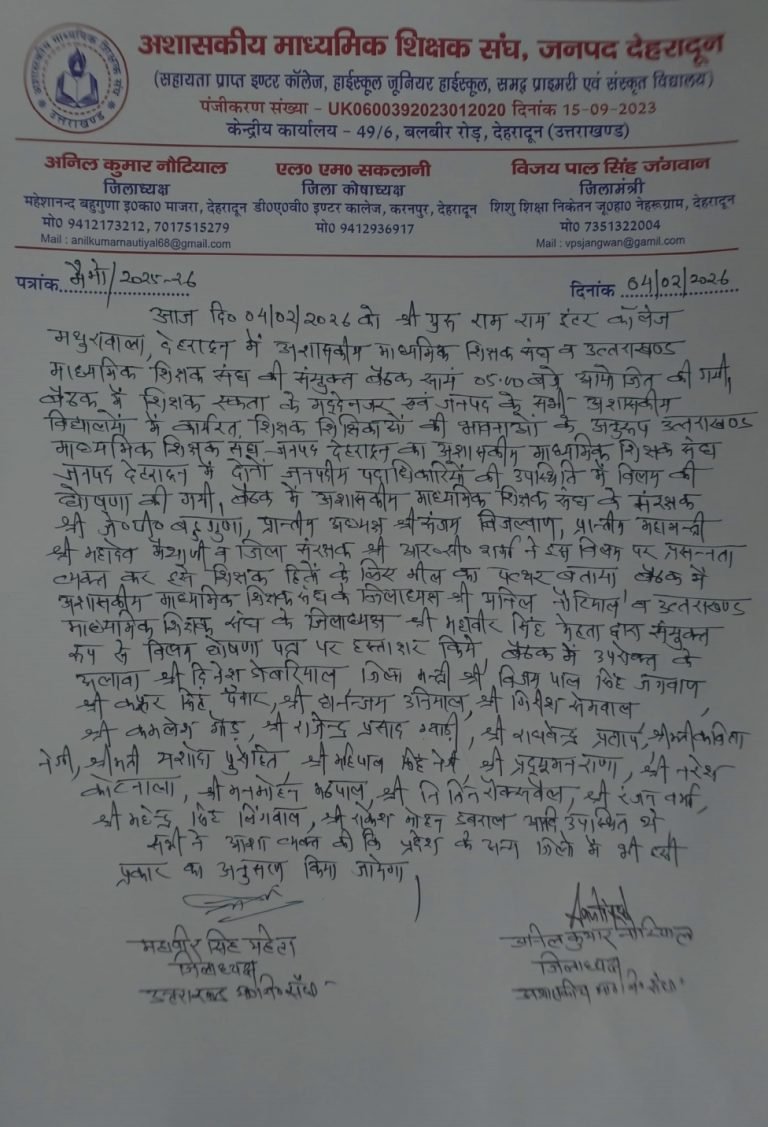 अशासकीय माध्यमिक शिक्षक संघ, जनपद देहरादून
(सहायता प्राप्त इण्टर कॉलेज, हाईस्कूल जूनियर हाईस्कूल, समद्व प्राइमरी एवं संस्कृत विद्यालय)
पंजीकरण संख्या - UK0600392023012020 दिनांक 15-09-2023
केन्द्रीय कार्यालय - 49/6, बलबीर रोड़, देहरादून (उत्तराखण्ड)
अनिल कुमार नौटियाल
जिलाध्यक्ष
महेशानन्द बहुगुणा इ०का० माजरा, देहरादून
मो0 9412173212, 7017515279
Mail : anilkumarnautiyal68@gmail.com
एल० एम० सकलानी
जिला कोषाध्यक्ष
डी०ए०वी० इण्टर कालेज, करनपुर, देहरादून
मो0 9412936917
विजय पाल सिंह जंगवान
जिलामंत्री
शिशु शिक्षा निकेतन जू०हा० नेहरूग्राम, देहरादून
मो0 7351322004
Mail : vpsjangwan@gamil.com
पत्रांक मैमो/2025-26
दिनांक 04/02/2026
आज दि० 04/02/2026 को श्री गुरु राम राय इंटर कॉलेज
मथुरावाला, देहरादून में अशासकीय माध्यमिक शिक्षक संघ व उत्तराखण्ड
माध्यमिक शिक्षक संघ की संयुक्त बैठक सायं 05:00 बजे आयोजित की गयी,
बैठक में शिक्षक एकता के मद्देनजर एवं जनपद के सभी अशासकीय
विद्यालयों में कार्यरत शिक्षक शिक्षिकाओं की भावनाओं के अनुरूप उत्तराखण्ड
माध्यमिक शिक्षक संघ जनपद देहरादून का अशासकीय माध्यमिक शिक्षक संघ
जनपद देहरादून में दोनों जनपदीय पदाधिकारियों की उपस्थिति में विलय की
घोषणा की गयी, बैठक में अशासकीय माध्यमिक शिक्षक संघ के संरक्षक
श्री जे०पी० बहुगुणा, प्रान्तीय अध्यक्ष श्री संजय बिजल्वाण, प्रान्तीय महामन्त्री
श्री महादेव मैठाणी व जिला संरक्षक श्री आर०सी० शर्मा ने इस विषय पर प्रसन्नता
व्यक्त कर इसे शिक्षक हितों के लिए मील का पत्थर बताया बैठक में
अशासकीय माध्यमिक शिक्षक संघ के जिलाध्यक्ष श्री अनिल नौटियाल व उत्तराखण्ड
माध्यमिक शिक्षक संघ के जिलाध्यक्ष श्री महावीर सिंह मेहता द्वारा संयुक्त
रूप से विलय घोषणा पत्र पर हस्ताक्षर किये, बैठक में उपरोक्त के
अलावा श्री दिनेश डोबरियाल जिला मन्त्री श्री विजय पाल सिंह जगवाण
श्री सिंह पंवार, श्री धनन्जय उनियाल, श्री गिरीश सेमवाल,
श्री कमलेश गौड़, श्री राजेन्द्र प्रसाद ग्वाड़ी, श्री राघवेन्द्र प्रताप, श्रीमती कविता
नेगी, श्रीमती यशोदा पुरोहित, श्री महिपाल सिंह नेगी, श्री प्रद्युमन राणा, श्री नरेश
कोटनाला, श्री मनमोहन मढपाल, श्री नितिन रोक्सवैल, श्री रंजन वर्मा,
श्री महेन्द्र सिंह लिंगवाल, श्री राकेश मोहन डबराल आदि उपस्थित थे
सभी ने आशा व्यक्त की कि प्रदेश के अन्य जिलों में भी इसी
प्रकार का अनुसरण किया जायेगा,
महावीर सिंह मेहता
जिलाध्यक्ष
उत्तराखण्ड मा०शि०संघ
अनिल कुमार नौटियाल
जिलाध्यक्ष
अशासकीय मा० शि० संघ